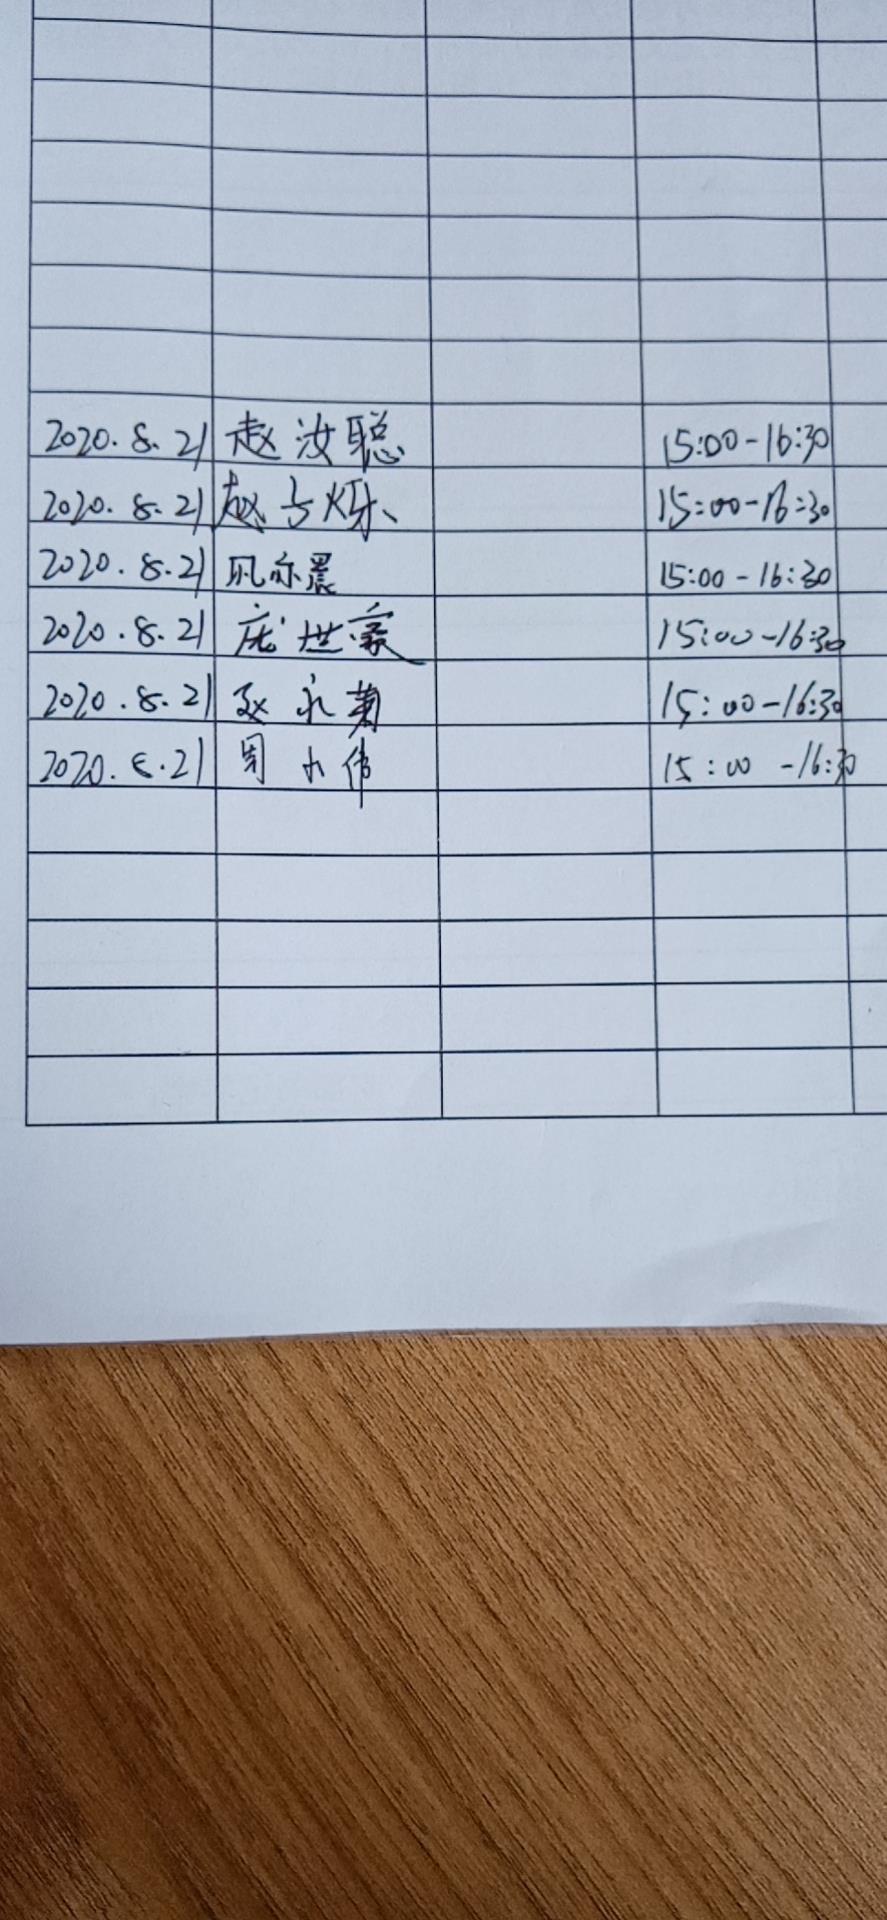 2020.8.21 赵汝聪 15:00-16:30
2020.8.21 赵 15:00-16:30
2020.8.21 亦晨 15:00-16:30
2020.8.21 庞世豪 15:00-16:30
2020.8.21 赵永菊 15:00-16:30
2020.8.21 周小伟 15:00-16:30